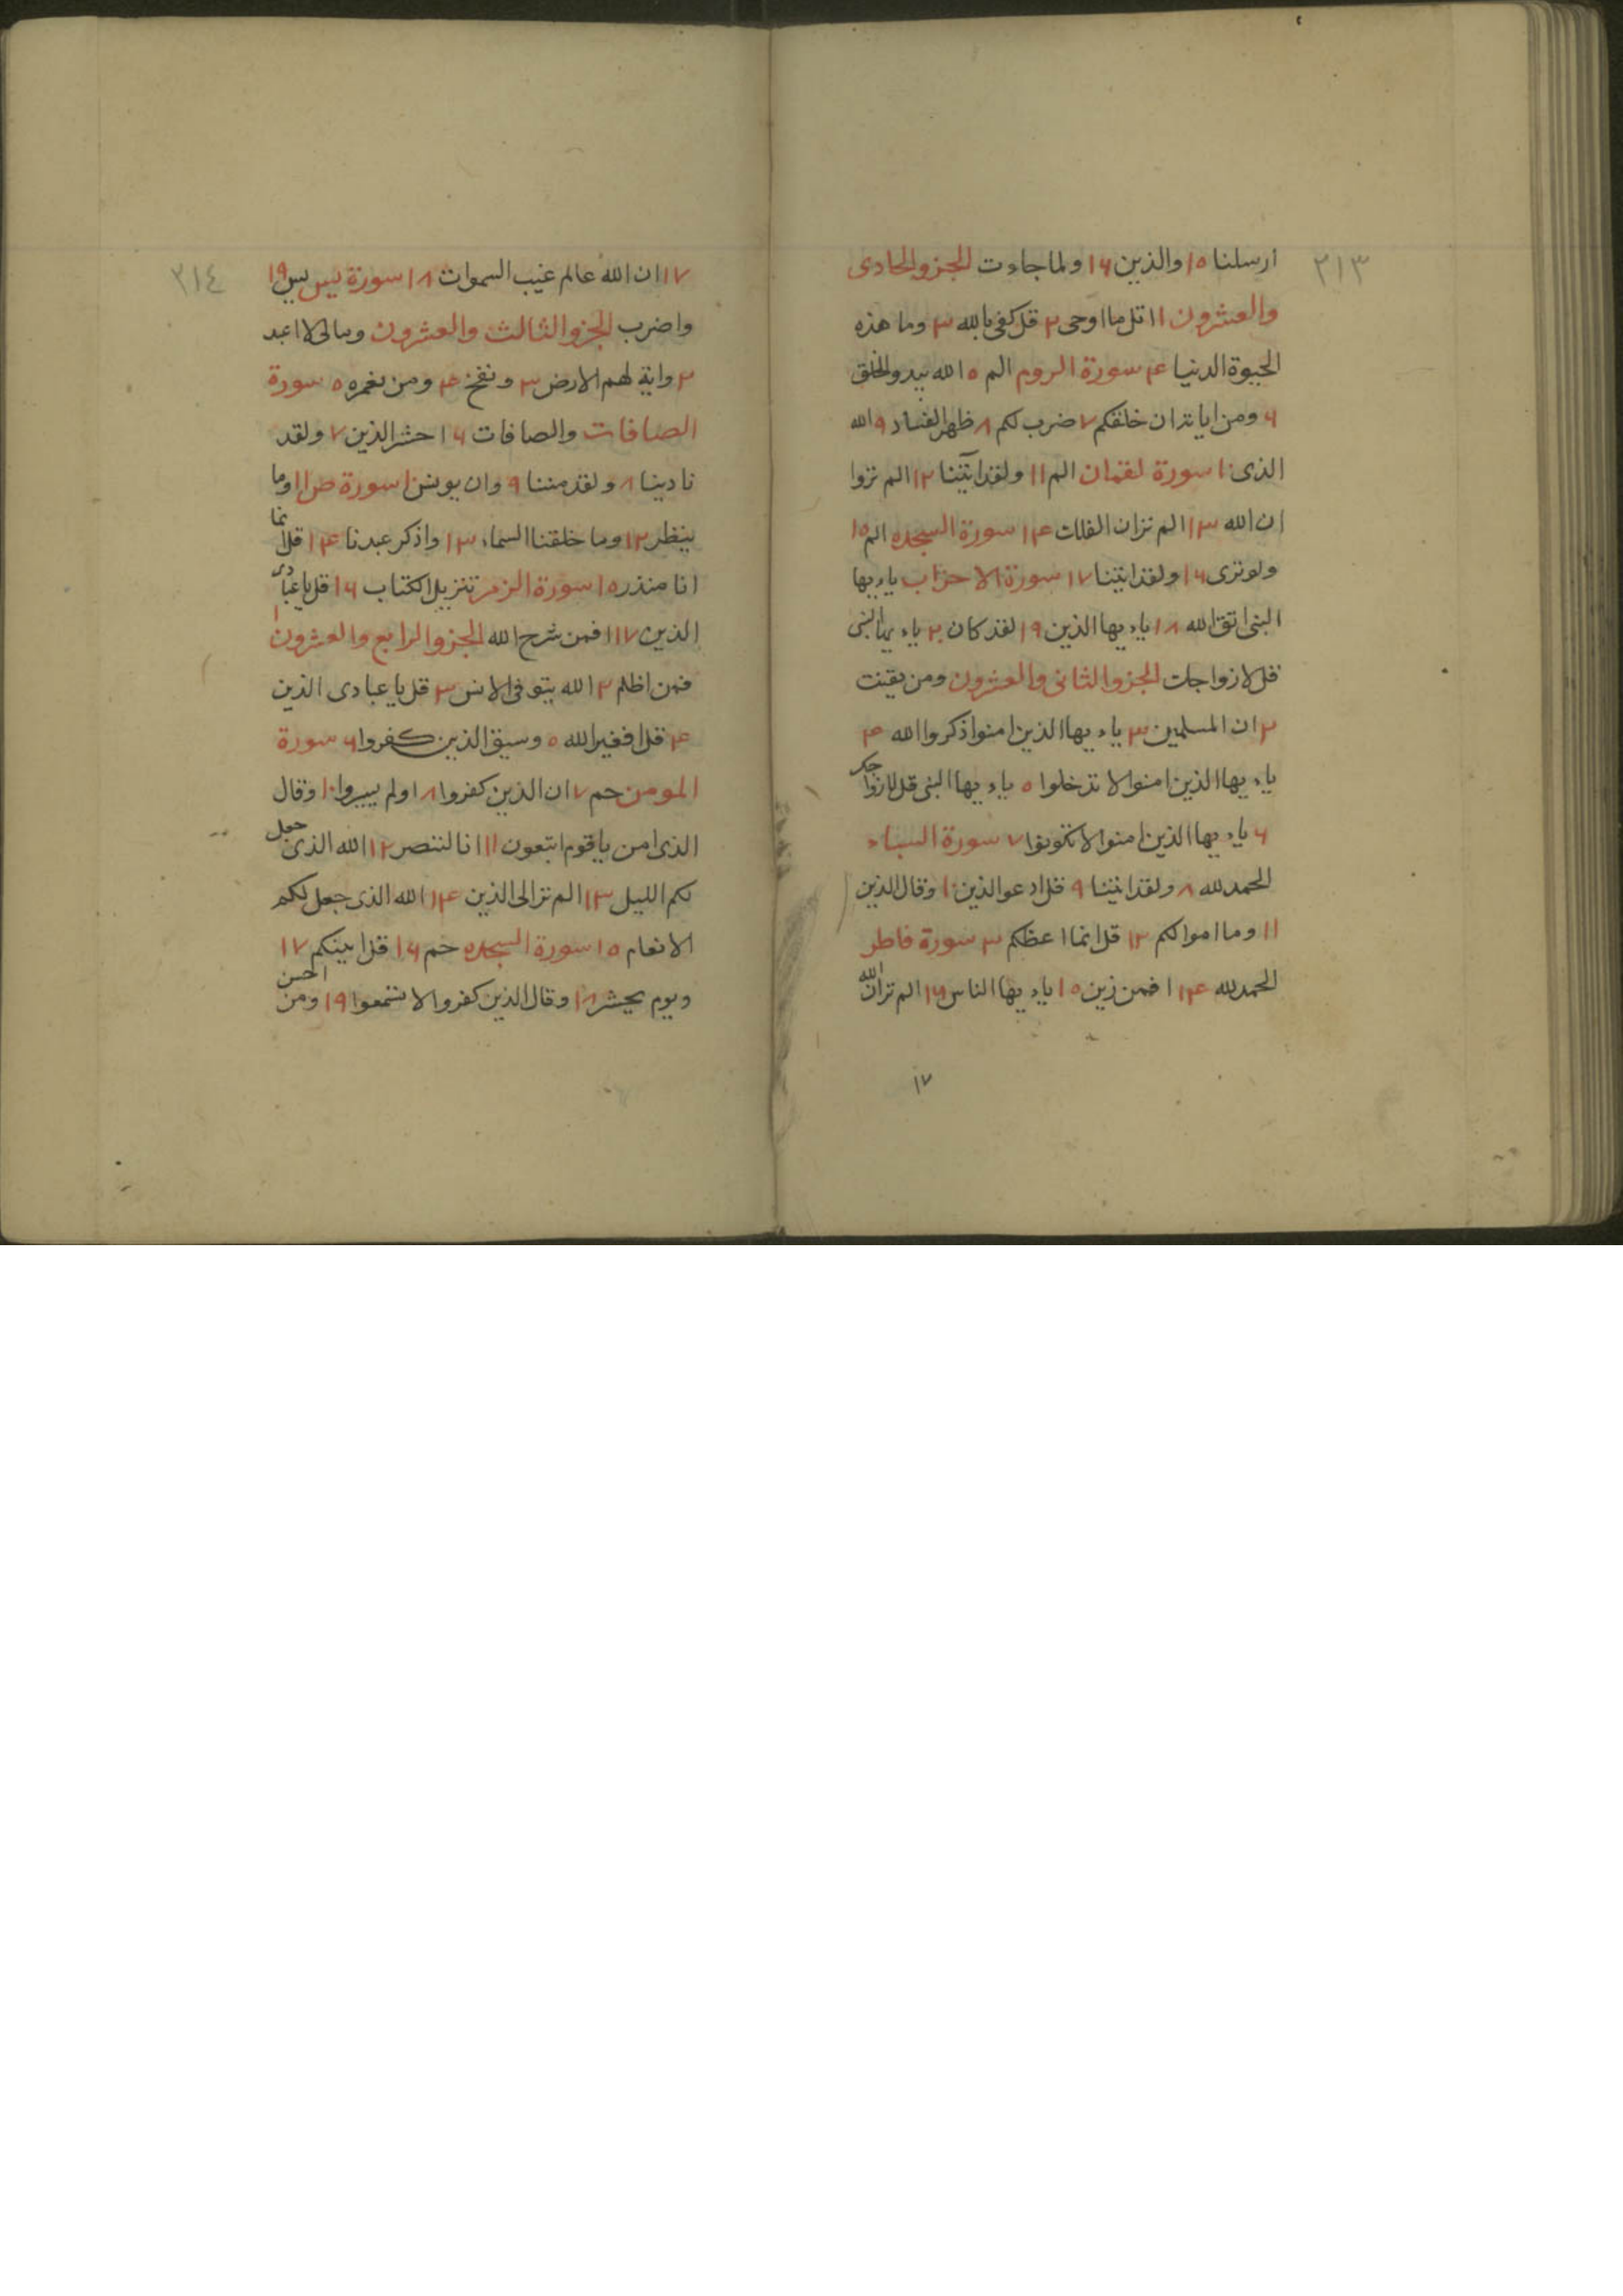 ٣١٣
ارسلنا ١٥ والذين ١٦ ولما جاءت الجزو الحادى
والعشرون ١ اتل ما اوحى ٢ قل كفى بالله ٣ وما هذه
الحيوة الدنيا ٤ سورة الروم الم ٥ الله يبدو الخلق
٦ ومن اياته ان خلقكم ٧ ضرب لكم ٨ ظهر الفساد ٩ الله
الذى ١٠ سورة لقمان الم ١١ ولقد آتينا ١٢ الم تروا
ان الله ١٣ الم تر ان الفلك ١٤ سورة السجده الم ١٥
ولو ترى ١٦ ولقد اتينا ١٧ سورة الاحزاب ياءيها
النبى اتق الله ١٨ ياءيها الذين ١٩ لقد كان ٢٠ ياءيها النبى
قل لازواجك الجزو الثانى والعشرون ومن يقنت
٢ ان المسلمين ٣ ياءيها الذين امنوا اذكروا الله ٤
ياءيها الذين امنوا لا تدخلوا ٥ ياءيها النبى قل لازواجك
٦ ياءيها الذين امنوا لا تكونوا ٧ سورة السباء
الحمد لله ٨ ولقد اتينا ٩ قل ادعو الذين ١٠ وقال الذين
١١ وما اموالكم ١٢ قل انما اعظكم ٣ سورة فاطر
الحمد لله ١٤ افمن زين ١٥ ياءيها الناس ١٦ الم تر ان الله
١٧
٣١٤
١٧ ان الله عالم غيب السموات ١٨ سورة يس يس ١٩
واضرب الجزو الثالث والعشرون ومالى لا اعبد
٢ واية لهم الارض ٣ ونفخ ٤ ومن نعمره ٥ سورة
الصافات والصافات ٦ احشر الذين ٧ ولقد
نادينا ٨ ولقد مننا ٩ وان يونس ١٠ سورة ص ١١ وما
ينظر ١٢ وما خلقنا السماء ١٣ واذكر عبدنا ١٤ قل انما
انا منذر ١٥ سورة الزمر تنزيل الكتاب ١٦ قل يا عبادى
الذين ١٧ افمن شرح الله الجزو الرابع والعشرون ١
فمن اظلم ٢ الله يتوفى الانس ٣ قل يا عبادى الذين
٤ قل افغير الله ٥ وسيق الذين كفروا ٦ سورة
المومن حم ٧ ان الذين كفروا ٨ اولم يسيروا ١٠ وقال
الذى امن يا قوم اتبعون ١١ انا لننصر ١٢ الله الذى جعل
لكم الليل ١٣ الم تر الى الذين ١٤ الله الذى جعل لكم
الانعام ١٥ سورة السجده حم ١٦ قل اينكم ١٧
ويوم يحشر ١٨ وقال الذين كفروا لا تسمعوا ١٩ ومن احسن